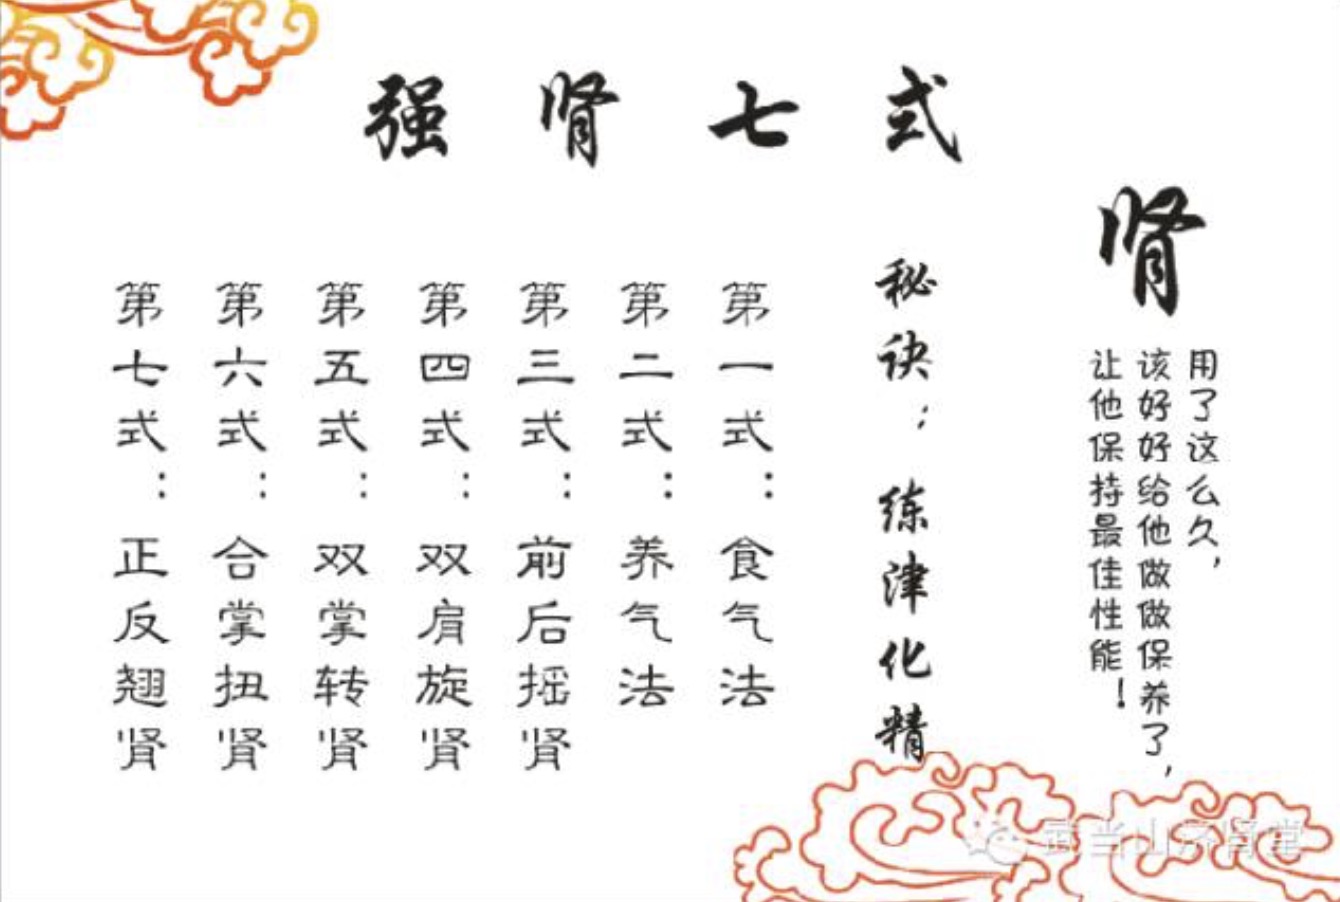 强肾七式
肾
用了这么久，
该好好给他做做保养了，
让他保持最佳性能！
秘诀：练津化精
第一式：食气法
第二式：养气法
第三式：前后摇肾
第四式：双肩旋肾
第五式：双掌转肾
第六式：合掌扭肾
第七式：正反翘肾
武当山济肾堂